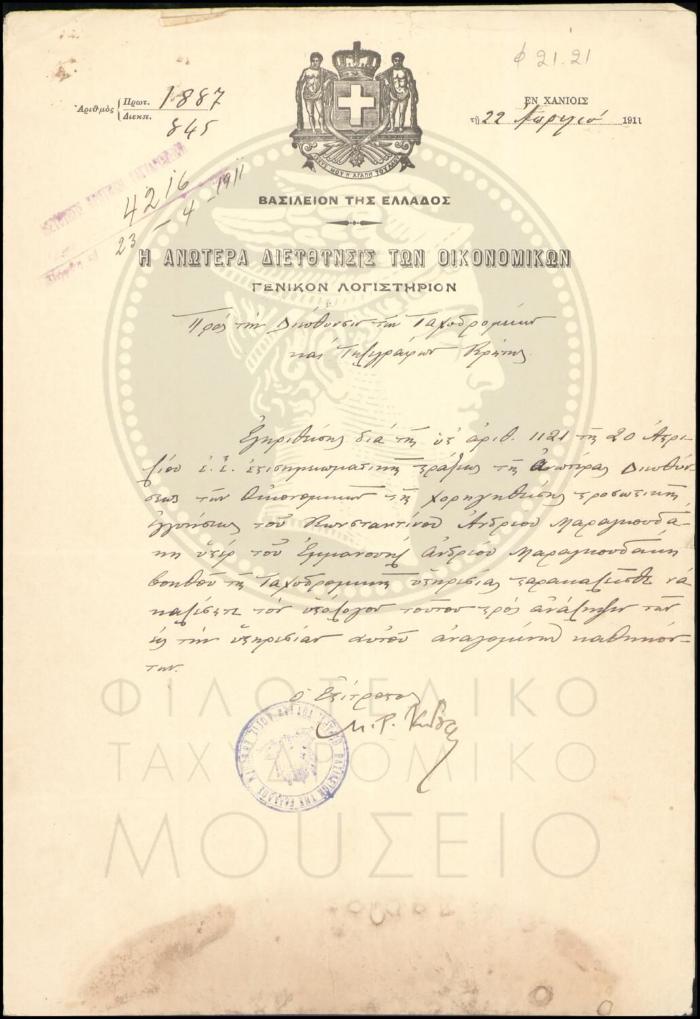 φ 21.21
Ἀριθμὸς Πρωτ. 1887
Διεκπ. 845
ΕΝ ΧΑΝΙΟΙΣ
τῇ 22 Ἀπριλίου 1911
4216
23 - 4 - 1911
ΒΑΣΙΛΕΙΟΝ ΤΗΣ ΕΛΛΑΔΟΣ
Η ΑΝΩΤΕΡΑ ΔΙΕΥΘΥΝΣΙΣ ΤΩΝ ΟΙΚΟΝΟΜΙΚΩΝ
ΓΕΝΙΚΟΝ ΛΟΓΙΣΤΗΡΙΟΝ
Πρὸς τὴν Διεύθυνσιν τῶν Ταχυδρομείων
καὶ Τηλεγράφων Κρήτης.
Ἐγκριθείσης διὰ τῆς ὑπ' ἀριθ. 1121 τῆς 20 Ἀπρι-
λίου ἐ. ἔ. ἐπισημειωματικῆς πράξεως τῆς Ἀνωτέρας Διευθύν-
σεως τῶν Οἰκονομικῶν τῆς χορηγηθείσης προσωπικῆς
ἐγγυήσεως τοῦ Κωνσταντίνου Ἀνδρέου Μαραγκουδά-
κη ὑπὲρ τοῦ Ἐμμανουὴλ Ἀνδρέου Μαραγκουδάκη
βοηθοῦ τῆς Ταχυδρομικῆς ὑπηρεσίας παρακαλεῖσθε νὰ
καλέσετε τὸν ὑπόλογον τοῦτον πρὸς ἀνάληψιν τῶν
εἰς τὴν ὑπηρεσίαν αὐτοῦ ἀναγομένων καθηκόν-
των.
ὁ Ἐπίτροπος
Μ. Ρ.
ΦΙΛΟΤΕΛΙΚΟ
ΤΑΧΥΔΡΟΜΙΚΟ
ΜΟΥΣΕΙΟ